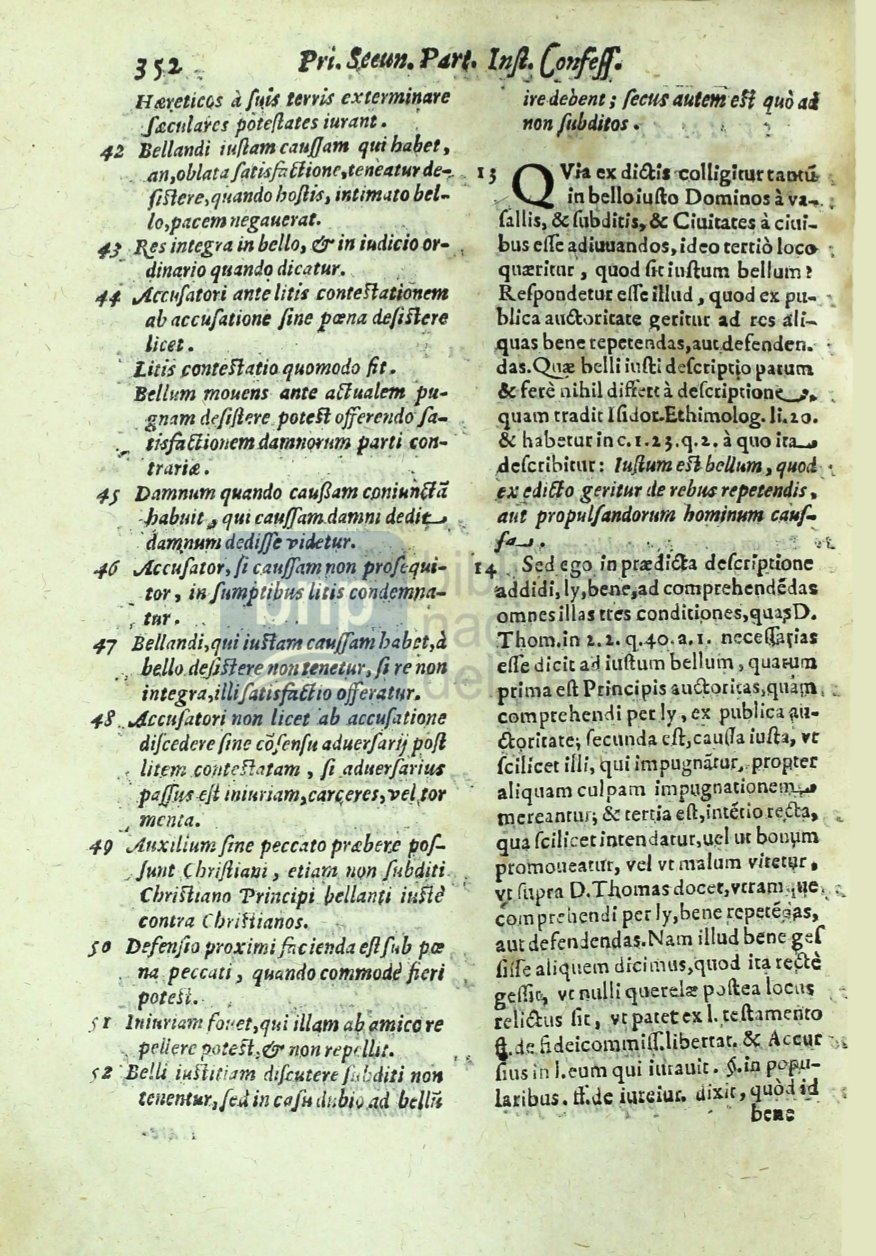 352 Pri. Secun. Part. Inst. Confess.
Hæreticos à suis terris exterminare
sæculares potestates iurant.
42 Bellandi iustam caussam qui habet,
an, oblata satisfactione, teneatur de-
sistere, quando hostis, intimato bel-
lo, pacem negauerat.
43 Res integra in bello, & in iudicio or-
dinario quando dicatur.
44 Accusatori ante litis contestationem
ab accusatione sine pœna desistere
licet.
Litis contestatio quomodo fit.
Bellum mouens ante actualem pu-
gnam desistere potest offerendo sa-
tisfactionem damnorum parti con-
trariæ.
45 Damnum quando caussam coniunctā
habuit, qui caussam damni dedit,
damnum dedisse videtur.
46 Accusator, si caussam non prosequi-
tor, in sumptibus litis condemna-
tur.
47 Bellandi, qui iustam caussam habet, à
bello desistere non tenetur, si re non
integra, illi satisfactio offeratur.
48 Accusatori non licet ab accusatione
discedere sine cōsensu aduersarij post
litem contestatam, si aduersarius
passus est iniuriam, carceres, vel tor
menta.
49 Auxilium sine peccato præbere pos-
sunt Christiani, etiam non subditi
Christiano Principi bellanti iustè
contra Christianos.
50 Defensio proximi facienda est sub pœ
na peccati, quando commodè fieri
potest.
51 Iniuriam fouet, qui illam ab amico re
pellere potest, & non repellit.
52 Belli iustitiam discutere subditi non
tenentur, sed in casu dubio ad bellū
ire debent; secus autem est quò ad
non subditos.
13 QVia ex dictis colligitur tantū
in bello iusto Dominos à va-
sallis, & subditis, & Ciuitates à ciui-
bus esse adiuuandos, ideo tertiò loco
quæritur, quod sit iustum bellum?
Respondetur esse illud, quod ex pu-
blica auctoritate geritur ad res ali-
quas bene repetendas, aut defenden.
das. Quæ belli iusti descriptio parum
& ferè nihil differt à descriptione,
quam tradit Isidor. Ethimolog. li. 20.
& habetur in c. 1. 23. q. 2. à quo ita
describitur: Iustum est bellum, quod
ex edicto geritur de rebus repetendis,
aut propulsandorum hominum caus-
sa.
14 Sed ego in prædicta descriptione
addidi, ly, bene, ad comprehendēdas
omnes illas tres conditiones, quas D.
Thom. in 2. 2. q. 40. a. 1. necessarias
esse dicit ad iustum bellum, quarum
prima est Principis auctoritas, quam
comprehendi per ly, ex publica au-
ctoritate; secunda est, caussa iusta, vt
scilicet illi, qui impugnātur, propter
aliquam culpam impugnationem
mereantur; & tertia est, intētio recta,
qua scilicet intendatur, uel ut bonum
promoueatur, vel vt malum vitetur,
vt supra D. Thomas docet, vtramque
comprehendi per ly, bene repetēdas,
aut defendendas. Nam illud bene ges
sisse aliquem dicimus, quod ita rectè
gessit, vt nulli querelæ postea locus
relictus sit, vt patet ex l. testamento
ff. de fideicommiss. libertat. & Accur
sius in l. eum qui iurauit. §. in popu-
laribus. ff. de iureiur. dixit, quòd id
bene